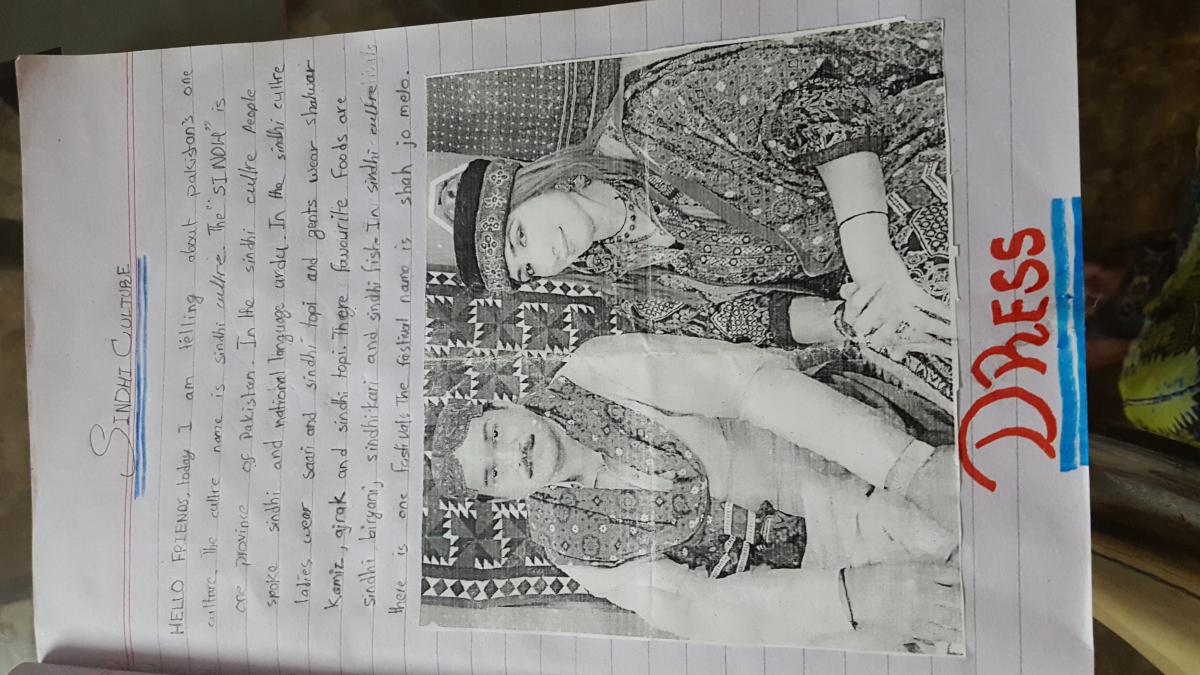 SINDHI CULTURE
HELLO FRIENDS, today I am télling about pakistan's one
cultrre. The cultre name is sindhi cultrre. The "SINDH" is
one province of Pakistan. In the sindhi cultre people
spoke sindhi and national language urdu. In the sindhi cultre
ladies wear saari and sindhi topi and gents wear shalwar
Kamiz, ajrak and sindhi topi. There favourite foods are
sindhi biryani, sindhi kari and sindhi fish. In sindhi cultre
there is one fastival. The fastival name is shah jo melo.
DRESS